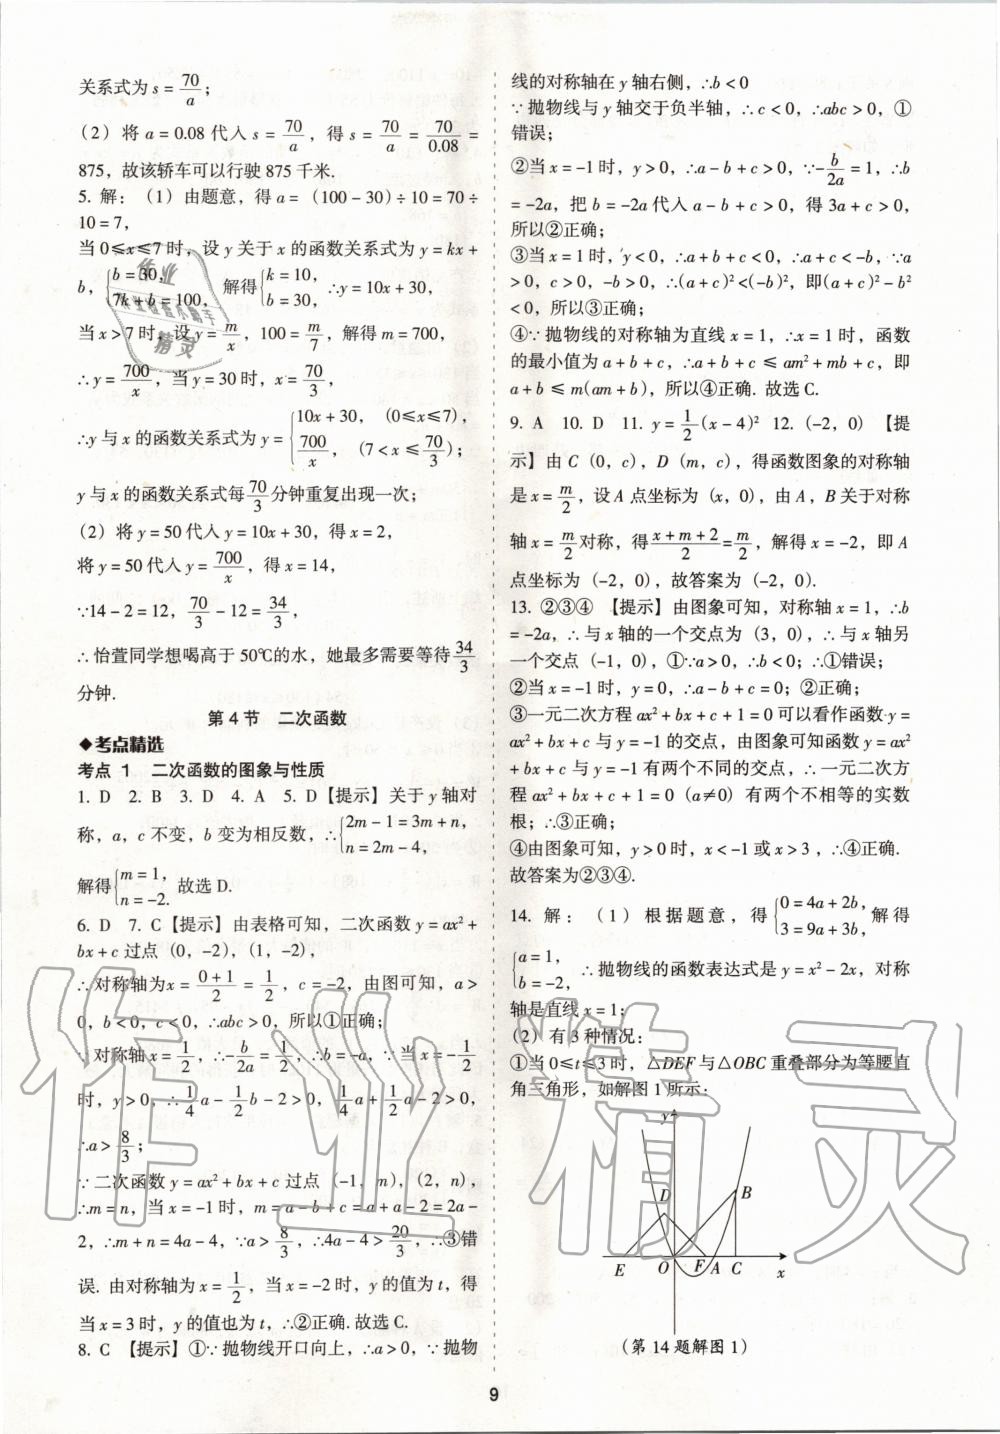 关系式为 s = 70/a；
（2）将 a = 0.08 代入 s = 70/a，得 s = 70/a = 70/0.08 =
875，故该轿车可以行驶 875 千米.
5. 解：（1）由题意，得 a =（100 - 30）÷ 10 = 70 ÷
10 = 7，
当 0 ≤ x ≤ 7 时，设 y 关于 x 的函数关系式为 y = kx +
b，{b = 30，7k + b = 100，解得{k = 10，b = 30，∴y = 10x + 30，
当 x > 7 时，设 y = m/x，100 = m/7，解得 m = 700，
∴y = 700/x，当 y = 30 时，x = 70/3，
∴y 与 x 的函数关系式为 y = {10x + 30，（0 ≤ x ≤ 7），700/x，（7 < x ≤ 70/3）；
y 与 x 的函数关系式每 70/3 分钟重复出现一次；
（2）将 y = 50 代入 y = 10x + 30，得 x = 2，
将 y = 50 代入 y = 700/x，得 x = 14，
∵14 - 2 = 12，70/3 - 12 = 34/3，
∴怡萱同学想喝高于 50℃的水，她最多需要等待 34/3
分钟.
第 4 节　二次函数
◆考点精选
考点 1　二次函数的图象与性质
1. D 2. B 3. D 4. A 5. D【提示】关于 y 轴对
称，a，c 不变，b 变为相反数，∴{2m - 1 = 3m + n，n = 2m - 4，
解得{m = 1，n = -2. 故选 D.
6. D 7. C【提示】由表格可知，二次函数 y = ax² +
bx + c 过点（0，-2），（1，-2），
∴对称轴为 x = (0 + 1)/2 = 1/2，c = -2，由图可知，a >
0，b < 0，c < 0，∴abc > 0，所以①正确；
∵对称轴 x = 1/2，∴-b/2a = 1/2，∴b = -a，∵当 x = -1/2
时，y > 0，∴1/4 a - 1/2 b - 2 > 0，1/4 a + 1/2 a - 2 > 0，
∴a > 8/3；
∵二次函数 y = ax² + bx + c 过点（-1，m），（2，n），
∴m = n，当 x = -1 时，m = a - b + c = a + a - 2 = 2a -
2，∴m + n = 4a - 4，∵a > 8/3，∴4a - 4 > 20/3，∴③错
误. 由对称轴为 x = 1/2，当 x = -2 时，y 的值为 t，得
当 x = 3 时，y 的值也为 t，∴②正确. 故选 C.
8. C【提示】①∵抛物线开口向上，∴a > 0，∵抛物
线的对称轴在 y 轴右侧，∴b < 0
∵抛物线与 y 轴交于负半轴，∴c < 0，∴abc > 0，①
错误；
②当 x = -1 时，y > 0，∴a - b + c > 0，∵-b/2a = 1，∴b
= -2a，把 b = -2a 代入 a - b + c > 0，得 3a + c > 0，
所以②正确；
③当 x = 1 时，y < 0，∴a + b + c < 0，∴a + c < -b，∵a
> 0，c > 0，-b > 0，∴(a + c)² < (-b)²，即(a + c)² - b²
< 0，所以③正确；
④∵抛物线的对称轴为直线 x = 1，∴x = 1 时，函数
的最小值为 a + b + c，∴a + b + c ≤ am² + mb + c，即
a + b ≤ m(am + b)，所以④正确. 故选 C.
9. A 10. D 11. y = 1/2 (x - 4)² 12.（-2，0）【提
示】由 C（0，c），D（m，c），得函数图象的对称轴
是 x = m/2，设 A 点坐标为（x，0），由 A，B 关于对称
轴 x = m/2 对称，得 (x + m + 2)/2 = m/2，解得 x = -2，即 A
点坐标为（-2，0），故答案为（-2，0）.
13. ②③④【提示】由图象可知，对称轴 x = 1，∴b
= -2a，∴与 x 轴的一个交点为（3，0），∴与 x 轴另
一个交点（-1，0），①∵a > 0，∴b < 0；∴①错误；
②当 x = -1 时，y = 0，∴a - b + c = 0；②正确；
③一元二次方程 ax² + bx + c + 1 = 0 可以看作函数 y =
ax² + bx + c 与 y = -1 的交点，由图象可知函数 y = ax²
+ bx + c 与 y = -1 有两个不同的交点，∴一元二次方
程 ax² + bx + c + 1 = 0（a≠0）有两个不相等的实数
根；∴③正确；
④由图象可知，y > 0 时，x < -1 或 x > 3，∴④正确.
故答案为②③④.
14. 解：（1）根据题意，得{0 = 4a + 2b，3 = 9a + 3b，解得
{a = 1，b = -2，∴抛物线的函数表达式是 y = x² - 2x，对称
轴是直线 x = 1；
（2）有 3 种情况：
①当 0 ≤ t ≤ 3 时，△DEF 与△OBC 重叠部分为等腰直
角三角形，如解图 1 所示：
y
D
B
E O F A C x
（第 14 题解图 1）
9
作业精灵
作业
精灵